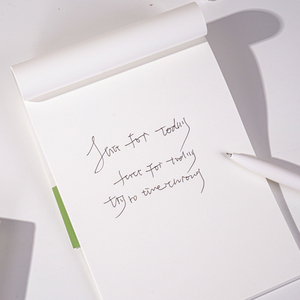 Just for today
Just for today
try to live through